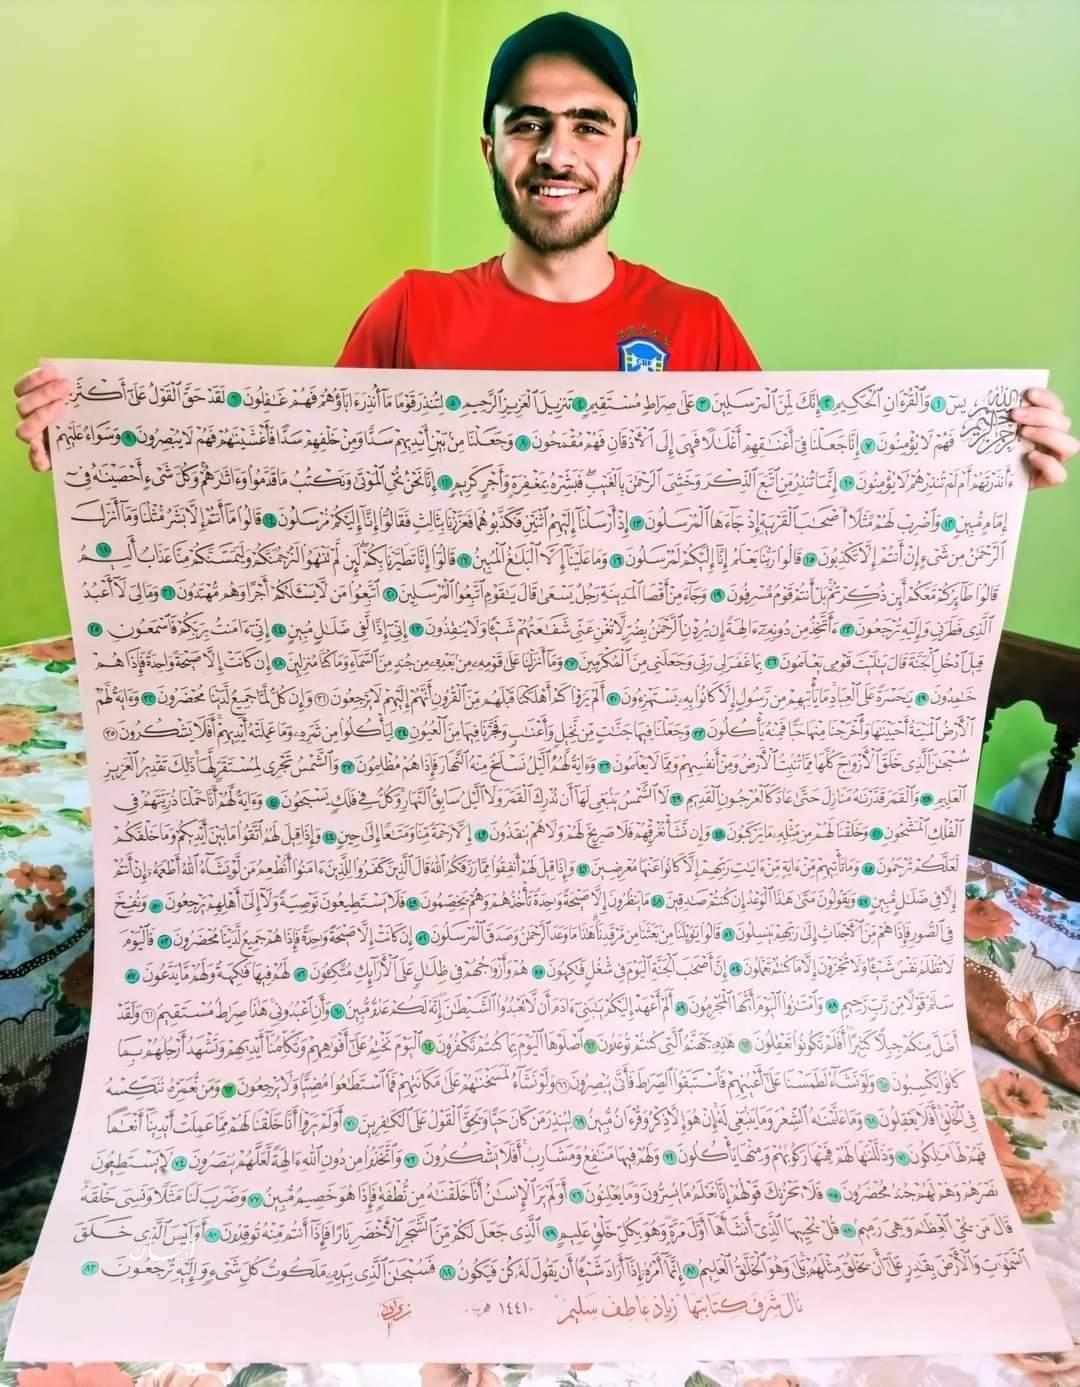 بِسْمِ ٱللَّهِ ٱلرَّحْمَٰنِ ٱلرَّحِيمِ يسٓ ١ وَٱلْقُرْءَانِ ٱلْحَكِيمِ ٢ إِنَّكَ لَمِنَ ٱلْمُرْسَلِينَ ٣ عَلَىٰ صِرَاطٍ مُّسْتَقِيمٍ ٤ تَنزِيلَ ٱلْعَزِيزِ ٱلرَّحِيمِ ٥ لِتُنذِرَ قَوْمًا مَّآ أُنذِرَ ءَابَآؤُهُمْ فَهُمْ غَٰفِلُونَ ٦ لَقَدْ حَقَّ ٱلْقَوْلُ عَلَىٰٓ أَكْثَرِهِمْ
فَهُمْ لَا يُؤْمِنُونَ ٧ إِنَّا جَعَلْنَا فِىٓ أَعْنَٰقِهِمْ أَغْلَٰلًا فَهِىَ إِلَى ٱلْأَذْقَانِ فَهُم مُّقْمَحُونَ ٨ وَجَعَلْنَا مِنۢ بَيْنِ أَيْدِيهِمْ سَدًّا وَمِنْ خَلْفِهِمْ سَدًّا فَأَغْشَيْنَٰهُمْ فَهُمْ لَا يُبْصِرُونَ ٩ وَسَوَآءٌ عَلَيْهِمْ
ءَأَنذَرْتَهُمْ أَمْ لَمْ تُنذِرْهُمْ لَا يُؤْمِنُونَ ١٠ إِنَّمَا تُنذِرُ مَنِ ٱتَّبَعَ ٱلذِّكْرَ وَخَشِىَ ٱلرَّحْمَٰنَ بِٱلْغَيْبِ فَبَشِّرْهُ بِمَغْفِرَةٍ وَأَجْرٍ كَرِيمٍ ١١ إِنَّا نَحْنُ نُحْىِ ٱلْمَوْتَىٰ وَنَكْتُبُ مَا قَدَّمُوا۟ وَءَاثَٰرَهُمْ وَكُلَّ شَىْءٍ أَحْصَيْنَٰهُ فِىٓ
إِمَامٍ مُّبِينٍ ١٢ وَٱضْرِبْ لَهُم مَّثَلًا أَصْحَٰبَ ٱلْقَرْيَةِ إِذْ جَآءَهَا ٱلْمُرْسَلُونَ ١٣ إِذْ أَرْسَلْنَآ إِلَيْهِمُ ٱثْنَيْنِ فَكَذَّبُوهُمَا فَعَزَّزْنَا بِثَالِثٍ فَقَالُوٓا۟ إِنَّآ إِلَيْكُم مُّرْسَلُونَ ١٤ قَالُوا۟ مَآ أَنتُمْ إِلَّا بَشَرٌ مِّثْلُنَا وَمَآ أَنزَلَ
ٱلرَّحْمَٰنُ مِن شَىْءٍ إِنْ أَنتُمْ إِلَّا تَكْذِبُونَ ١٥ قَالُوا۟ رَبُّنَا يَعْلَمُ إِنَّآ إِلَيْكُمْ لَمُرْسَلُونَ ١٦ وَمَا عَلَيْنَآ إِلَّا ٱلْبَلَٰغُ ٱلْمُبِينُ ١٧ قَالُوٓا۟ إِنَّا تَطَيَّرْنَا بِكُمْ لَئِن لَّمْ تَنتَهُوا۟ لَنَرْجُمَنَّكُمْ وَلَيَمَسَّنَّكُم مِّنَّا عَذَابٌ أَلِيمٌ ١٨
قَالُوا۟ طَٰٓئِرُكُم مَّعَكُمْ أَئِن ذُكِّرْتُم بَلْ أَنتُمْ قَوْمٌ مُّسْرِفُونَ ١٩ وَجَآءَ مِنْ أَقْصَا ٱلْمَدِينَةِ رَجُلٌ يَسْعَىٰ قَالَ يَٰقَوْمِ ٱتَّبِعُوا۟ ٱلْمُرْسَلِينَ ٢٠ ٱتَّبِعُوا۟ مَن لَّا يَسْـَٔلُكُمْ أَجْرًا وَهُم مُّهْتَدُونَ ٢١ وَمَا لِىَ لَآ أَعْبُدُ
ٱلَّذِى فَطَرَنِى وَإِلَيْهِ تُرْجَعُونَ ٢٢ ءَأَتَّخِذُ مِن دُونِهِۦٓ ءَالِهَةً إِن يُرِدْنِ ٱلرَّحْمَٰنُ بِضُرٍّ لَّا تُغْنِ عَنِّى شَفَٰعَتُهُمْ شَيْـًٔا وَلَا يُنقِذُونِ ٢٣ إِنِّىٓ إِذًا لَّفِى ضَلَٰلٍ مُّبِينٍ ٢٤ إِنِّىٓ ءَامَنتُ بِرَبِّكُمْ فَٱسْمَعُونِ ٢٥
قِيلَ ٱدْخُلِ ٱلْجَنَّةَ قَالَ يَٰلَيْتَ قَوْمِى يَعْلَمُونَ ٢٦ بِمَا غَفَرَ لِى رَبِّى وَجَعَلَنِى مِنَ ٱلْمُكْرَمِينَ ٢٧ وَمَآ أَنزَلْنَا عَلَىٰ قَوْمِهِۦ مِنۢ بَعْدِهِۦ مِن جُندٍ مِّنَ ٱلسَّمَآءِ وَمَا كُنَّا مُنزِلِينَ ٢٨ إِن كَانَتْ إِلَّا صَيْحَةً وَٰحِدَةً فَإِذَا هُمْ
خَٰمِدُونَ ٢٩ يَٰحَسْرَةً عَلَى ٱلْعِبَادِ مَا يَأْتِيهِم مِّن رَّسُولٍ إِلَّا كَانُوا۟ بِهِۦ يَسْتَهْزِءُونَ ٣٠ أَلَمْ يَرَوْا۟ كَمْ أَهْلَكْنَا قَبْلَهُم مِّنَ ٱلْقُرُونِ أَنَّهُمْ إِلَيْهِمْ لَا يَرْجِعُونَ ٣١ وَإِن كُلٌّ لَّمَّا جَمِيعٌ لَّدَيْنَا مُحْضَرُونَ ٣٢ وَءَايَةٌ لَّهُمُ
ٱلْأَرْضُ ٱلْمَيْتَةُ أَحْيَيْنَٰهَا وَأَخْرَجْنَا مِنْهَا حَبًّا فَمِنْهُ يَأْكُلُونَ ٣٣ وَجَعَلْنَا فِيهَا جَنَّٰتٍ مِّن نَّخِيلٍ وَأَعْنَٰبٍ وَفَجَّرْنَا فِيهَا مِنَ ٱلْعُيُونِ ٣٤ لِيَأْكُلُوا۟ مِن ثَمَرِهِۦ وَمَا عَمِلَتْهُ أَيْدِيهِمْ أَفَلَا يَشْكُرُونَ ٣٥
سُبْحَٰنَ ٱلَّذِى خَلَقَ ٱلْأَزْوَٰجَ كُلَّهَا مِمَّا تُنۢبِتُ ٱلْأَرْضُ وَمِنْ أَنفُسِهِمْ وَمِمَّا لَا يَعْلَمُونَ ٣٦ وَءَايَةٌ لَّهُمُ ٱلَّيْلُ نَسْلَخُ مِنْهُ ٱلنَّهَارَ فَإِذَا هُم مُّظْلِمُونَ ٣٧ وَٱلشَّمْسُ تَجْرِى لِمُسْتَقَرٍّ لَّهَا ذَٰلِكَ تَقْدِيرُ ٱلْعَزِيزِ
ٱلْعَلِيمِ ٣٨ وَٱلْقَمَرَ قَدَّرْنَٰهُ مَنَازِلَ حَتَّىٰ عَادَ كَٱلْعُرْجُونِ ٱلْقَدِيمِ ٣٩ لَا ٱلشَّمْسُ يَنۢبَغِى لَهَآ أَن تُدْرِكَ ٱلْقَمَرَ وَلَا ٱلَّيْلُ سَابِقُ ٱلنَّهَارِ وَكُلٌّ فِى فَلَكٍ يَسْبَحُونَ ٤٠ وَءَايَةٌ لَّهُمْ أَنَّا حَمَلْنَا ذُرِّيَّتَهُمْ فِى
ٱلْفُلْكِ ٱلْمَشْحُونِ ٤١ وَخَلَقْنَا لَهُم مِّن مِّثْلِهِۦ مَا يَرْكَبُونَ ٤٢ وَإِن نَّشَأْ نُغْرِقْهُمْ فَلَا صَرِيخَ لَهُمْ وَلَا هُمْ يُنقَذُونَ ٤٣ إِلَّا رَحْمَةً مِّنَّا وَمَتَٰعًا إِلَىٰ حِينٍ ٤٤ وَإِذَا قِيلَ لَهُمُ ٱتَّقُوا۟ مَا بَيْنَ أَيْدِيكُمْ وَمَا خَلْفَكُمْ
لَعَلَّكُمْ تُرْحَمُونَ ٤٥ وَمَا تَأْتِيهِم مِّنْ ءَايَةٍ مِّنْ ءَايَٰتِ رَبِّهِمْ إِلَّا كَانُوا۟ عَنْهَا مُعْرِضِينَ ٤٦ وَإِذَا قِيلَ لَهُمْ أَنفِقُوا۟ مِمَّا رَزَقَكُمُ ٱللَّهُ قَالَ ٱلَّذِينَ كَفَرُوا۟ لِلَّذِينَ ءَامَنُوٓا۟ أَنُطْعِمُ مَن لَّوْ يَشَآءُ ٱللَّهُ أَطْعَمَهُۥٓ إِنْ أَنتُمْ
إِلَّا فِى ضَلَٰلٍ مُّبِينٍ ٤٧ وَيَقُولُونَ مَتَىٰ هَٰذَا ٱلْوَعْدُ إِن كُنتُمْ صَٰدِقِينَ ٤٨ مَا يَنظُرُونَ إِلَّا صَيْحَةً وَٰحِدَةً تَأْخُذُهُمْ وَهُمْ يَخِصِّمُونَ ٤٩ فَلَا يَسْتَطِيعُونَ تَوْصِيَةً وَلَآ إِلَىٰٓ أَهْلِهِمْ يَرْجِعُونَ ٥٠ وَنُفِخَ
فِى ٱلصُّورِ فَإِذَا هُم مِّنَ ٱلْأَجْدَاثِ إِلَىٰ رَبِّهِمْ يَنسِلُونَ ٥١ قَالُوا۟ يَٰوَيْلَنَا مَنۢ بَعَثَنَا مِن مَّرْقَدِنَا هَٰذَا مَا وَعَدَ ٱلرَّحْمَٰنُ وَصَدَقَ ٱلْمُرْسَلُونَ ٥٢ إِن كَانَتْ إِلَّا صَيْحَةً وَٰحِدَةً فَإِذَا هُمْ جَمِيعٌ لَّدَيْنَا مُحْضَرُونَ ٥٣ فَٱلْيَوْمَ
لَا تُظْلَمُ نَفْسٌ شَيْـًٔا وَلَا تُجْزَوْنَ إِلَّا مَا كُنتُمْ تَعْمَلُونَ ٥٤ إِنَّ أَصْحَٰبَ ٱلْجَنَّةِ ٱلْيَوْمَ فِى شُغُلٍ فَٰكِهُونَ ٥٥ هُمْ وَأَزْوَٰجُهُمْ فِى ظِلَٰلٍ عَلَى ٱلْأَرَآئِكِ مُتَّكِـُٔونَ ٥٦ لَهُمْ فِيهَا فَٰكِهَةٌ وَلَهُم مَّا يَدَّعُونَ ٥٧
سَلَٰمٌ قَوْلًا مِّن رَّبٍّ رَّحِيمٍ ٥٨ وَٱمْتَٰزُوا۟ ٱلْيَوْمَ أَيُّهَا ٱلْمُجْرِمُونَ ٥٩ أَلَمْ أَعْهَدْ إِلَيْكُمْ يَٰبَنِىٓ ءَادَمَ أَن لَّا تَعْبُدُوا۟ ٱلشَّيْطَٰنَ إِنَّهُۥ لَكُمْ عَدُوٌّ مُّبِينٌ ٦٠ وَأَنِ ٱعْبُدُونِى هَٰذَا صِرَٰطٌ مُّسْتَقِيمٌ ٦١ وَلَقَدْ
أَضَلَّ مِنكُمْ جِبِلًّا كَثِيرًا أَفَلَمْ تَكُونُوا۟ تَعْقِلُونَ ٦٢ هَٰذِهِۦ جَهَنَّمُ ٱلَّتِى كُنتُمْ تُوعَدُونَ ٦٣ ٱصْلَوْهَا ٱلْيَوْمَ بِمَا كُنتُمْ تَكْفُرُونَ ٦٤ ٱلْيَوْمَ نَخْتِمُ عَلَىٰٓ أَفْوَٰهِهِمْ وَتُكَلِّمُنَآ أَيْدِيهِمْ وَتَشْهَدُ أَرْجُلُهُم بِمَا
كَانُوا۟ يَكْسِبُونَ ٦٥ وَلَوْ نَشَآءُ لَطَمَسْنَا عَلَىٰٓ أَعْيُنِهِمْ فَٱسْتَبَقُوا۟ ٱلصِّرَٰطَ فَأَنَّىٰ يُبْصِرُونَ ٦٦ وَلَوْ نَشَآءُ لَمَسَخْنَٰهُمْ عَلَىٰ مَكَانَتِهِمْ فَمَا ٱسْتَطَٰعُوا۟ مُضِيًّا وَلَا يَرْجِعُونَ ٦٧ وَمَن نُّعَمِّرْهُ نُنَكِّسْهُ
فِى ٱلْخَلْقِ أَفَلَا يَعْقِلُونَ ٦٨ وَمَا عَلَّمْنَٰهُ ٱلشِّعْرَ وَمَا يَنۢبَغِى لَهُۥٓ إِنْ هُوَ إِلَّا ذِكْرٌ وَقُرْءَانٌ مُّبِينٌ ٦٩ لِّيُنذِرَ مَن كَانَ حَيًّا وَيَحِقَّ ٱلْقَوْلُ عَلَى ٱلْكَٰفِرِينَ ٧٠ أَوَلَمْ يَرَوْا۟ أَنَّا خَلَقْنَا لَهُم مِّمَّا عَمِلَتْ أَيْدِينَآ أَنْعَٰمًا
فَهُمْ لَهَا مَٰلِكُونَ ٧١ وَذَلَّلْنَٰهَا لَهُمْ فَمِنْهَا رَكُوبُهُمْ وَمِنْهَا يَأْكُلُونَ ٧٢ وَلَهُمْ فِيهَا مَنَٰفِعُ وَمَشَارِبُ أَفَلَا يَشْكُرُونَ ٧٣ وَٱتَّخَذُوا۟ مِن دُونِ ٱللَّهِ ءَالِهَةً لَّعَلَّهُمْ يُنصَرُونَ ٧٤ لَا يَسْتَطِيعُونَ
نَصْرَهُمْ وَهُمْ لَهُمْ جُندٌ مُّحْضَرُونَ ٧٥ فَلَا يَحْزُنكَ قَوْلُهُمْ إِنَّا نَعْلَمُ مَا يُسِرُّونَ وَمَا يُعْلِنُونَ ٧٦ أَوَلَمْ يَرَ ٱلْإِنسَٰنُ أَنَّا خَلَقْنَٰهُ مِن نُّطْفَةٍ فَإِذَا هُوَ خَصِيمٌ مُّبِينٌ ٧٧ وَضَرَبَ لَنَا مَثَلًا وَنَسِىَ خَلْقَهُۥ
قَالَ مَن يُحْىِ ٱلْعِظَٰمَ وَهِىَ رَمِيمٌ ٧٨ قُلْ يُحْيِيهَا ٱلَّذِىٓ أَنشَأَهَآ أَوَّلَ مَرَّةٍ وَهُوَ بِكُلِّ خَلْقٍ عَلِيمٌ ٧٩ ٱلَّذِى جَعَلَ لَكُم مِّنَ ٱلشَّجَرِ ٱلْأَخْضَرِ نَارًا فَإِذَآ أَنتُم مِّنْهُ تُوقِدُونَ ٨٠ أَوَلَيْسَ ٱلَّذِى خَلَقَ
ٱلسَّمَٰوَٰتِ وَٱلْأَرْضَ بِقَٰدِرٍ عَلَىٰٓ أَن يَخْلُقَ مِثْلَهُم بَلَىٰ وَهُوَ ٱلْخَلَّٰقُ ٱلْعَلِيمُ ٨١ إِنَّمَآ أَمْرُهُۥٓ إِذَآ أَرَادَ شَيْـًٔا أَن يَقُولَ لَهُۥ كُن فَيَكُونُ ٨٢ فَسُبْحَٰنَ ٱلَّذِى بِيَدِهِۦ مَلَكُوتُ كُلِّ شَىْءٍ وَإِلَيْهِ تُرْجَعُونَ ٨٣
نال شرف كتابتها زياد عاطف سليم ١٤٤١